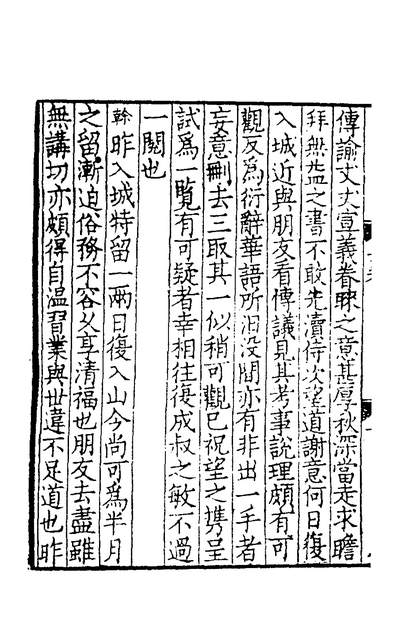 傳諭丈丈宣義眷睐之意甚厚秋深當走求瞻
拜無益之書不敢先瀆侍次望道謝意何日復
入城近與朋友看傳議見其考事說理頗有可
觀反為衍辭華語所汨没間亦有非出一手者
妄意刪去三取其一似稍可觀已祝望之攜呈
試為一覧有可疑者幸相往復成叔之敏不過
一閱也
榦昨入城特留一兩日復入山今尚可為半月
之留漸迫俗務不容久享清福也朋友去盡雖
無講切亦頗得自温習業與世違不足道也昨